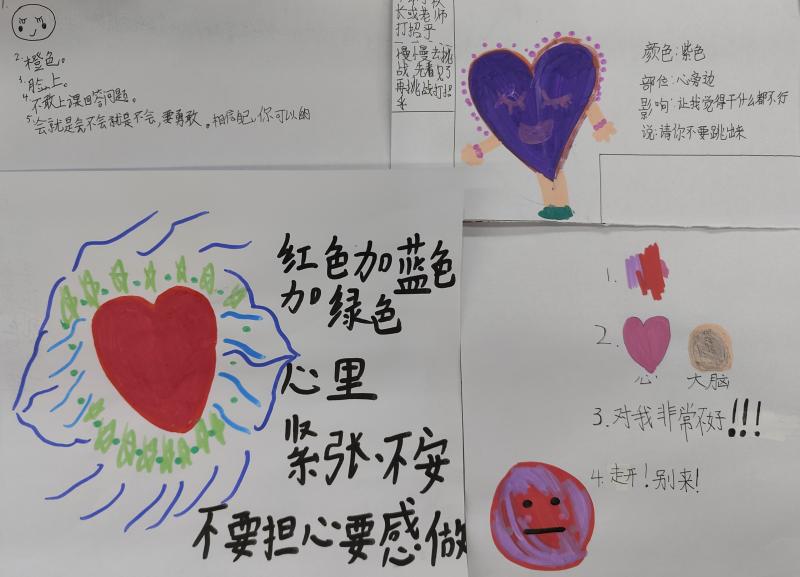 2. 橙色。
3. 脸上。
4. 不敢上课回答问题。
5. 会就是会不会就是不会,要勇敢。相信自己,你可以的
长或老师
打招乎
慢慢去挑
战,先看见了
再挑战打招
乎
颜色:紫色
部位:心旁边
影响:让我觉得干什么都不行
说:请你不要跳出来
红色加蓝色
加绿色
心里
紧张·不安
不要担心要感做
1.
2.
心 大脑
3.对我非常不好!!!
4.走开!别来!